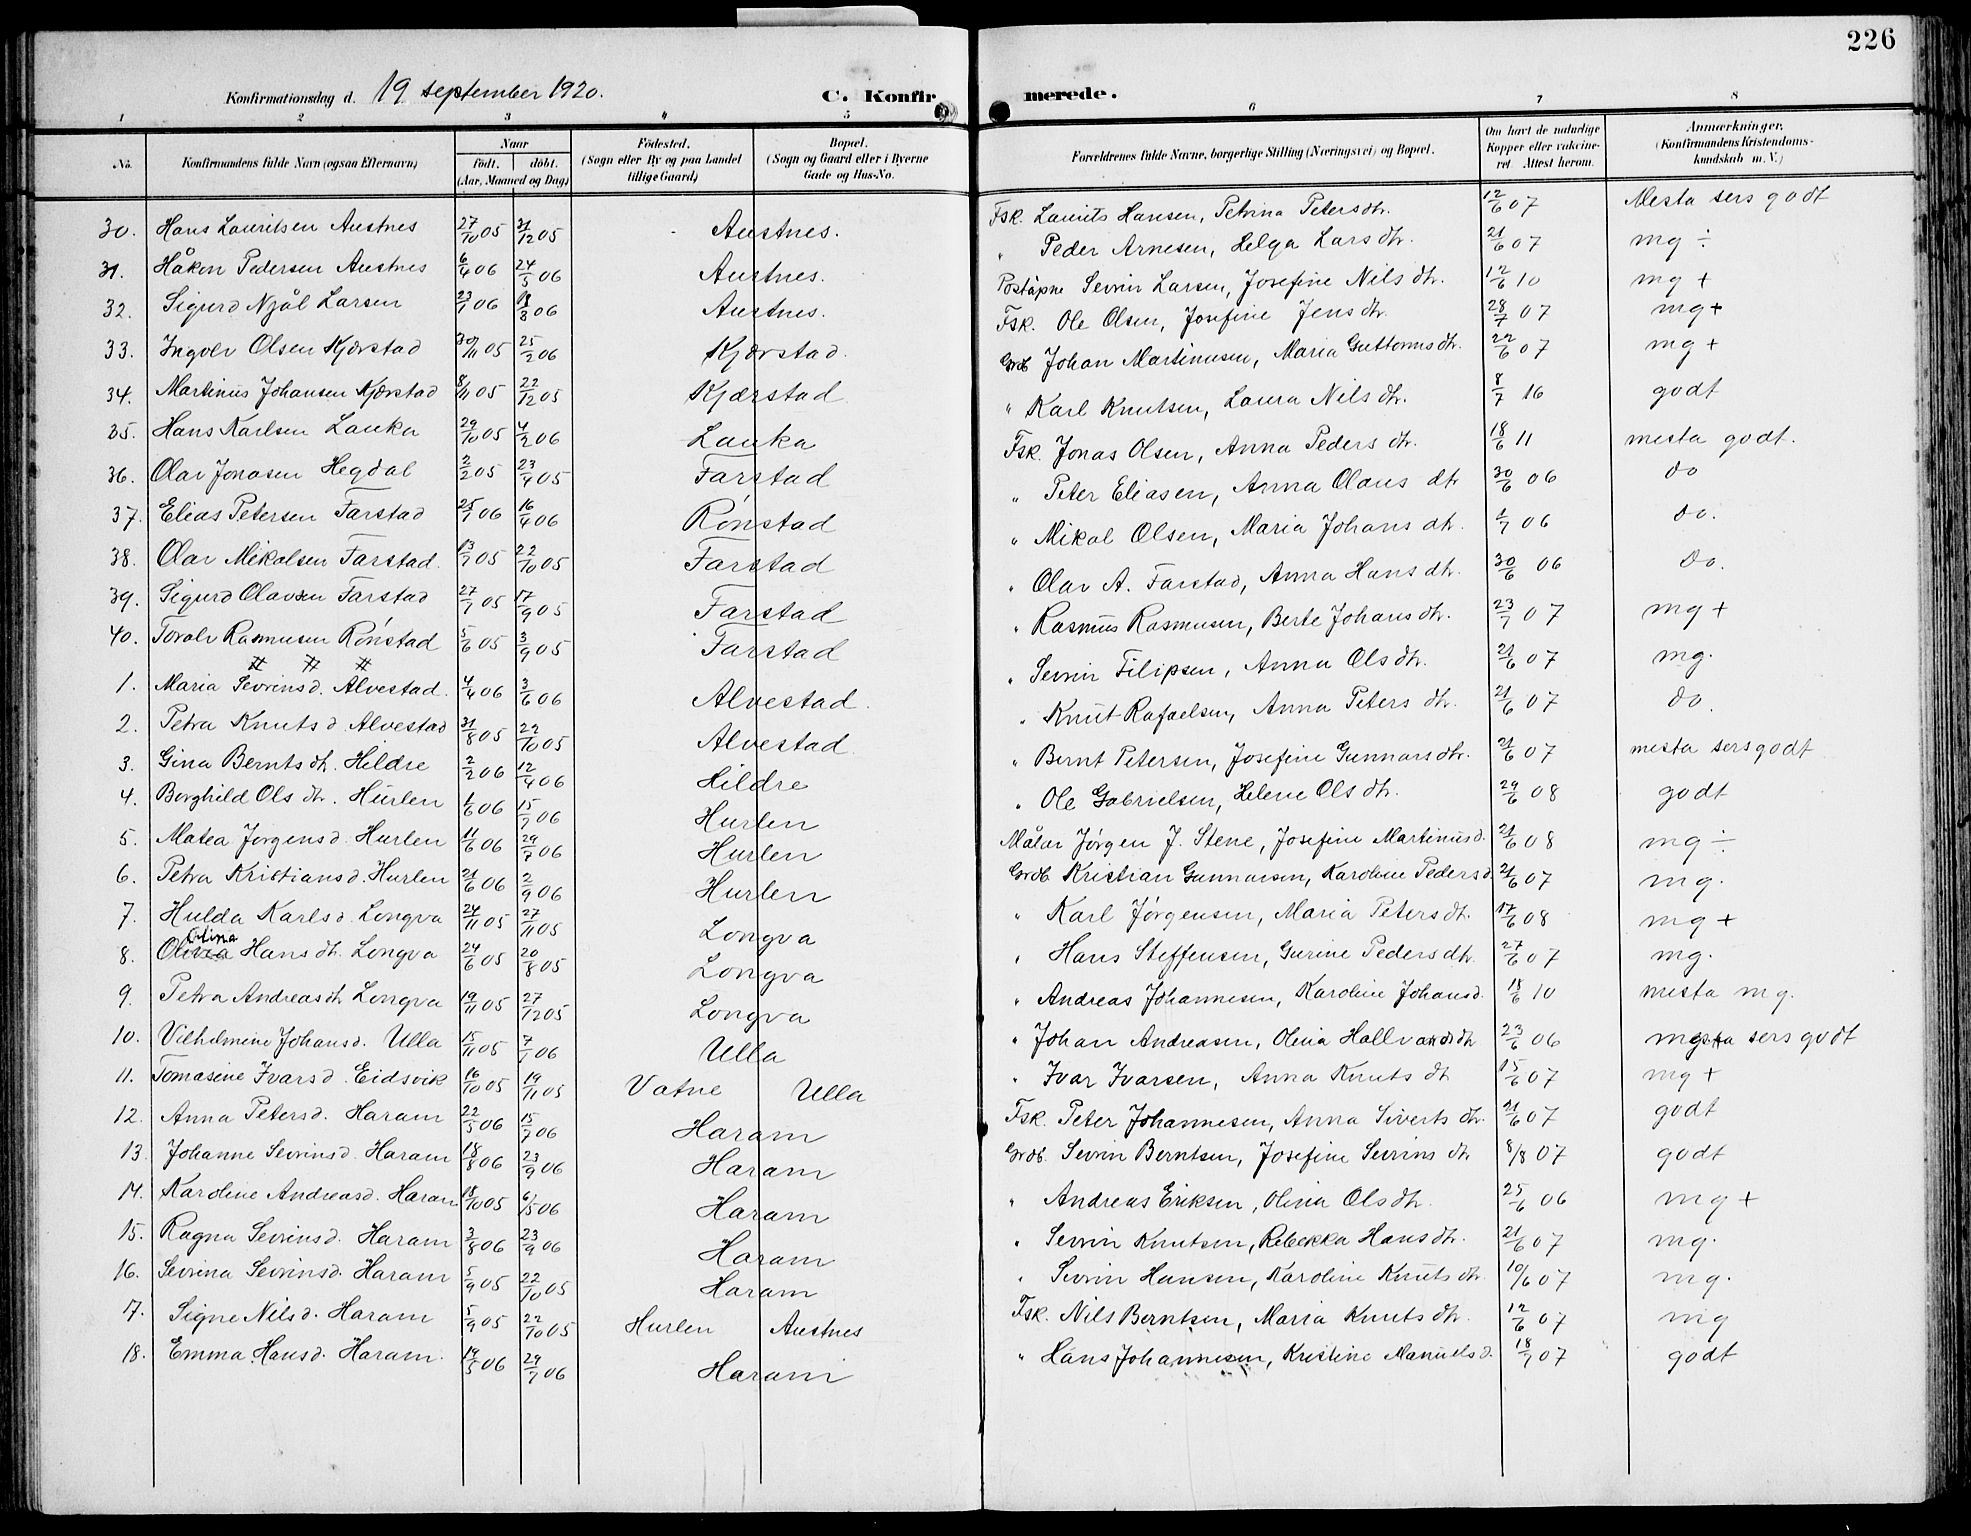 226
Konfirmationsdag d. 19 september 1920. C. Konfirmerede.
1 2 3 4 5 6 7 8
No. Konfirmandens fulde Navn (ogsaa Efternavn) Naar født. døbt. (Aar, Maaned og Dag) Fødested. (Sogn eller By og paa Landet tillige Gaard) Bopæl. (Sogn og Gaard eller i Byerne Gade og Hus-No. Forældrenes fulde Navne, borgerlige Stilling (Næringsvei) og Bopæl. Om havt de naturlige Kopper eller vaccineret. Attest herom. Anmærkninger. (Konfirmandens Kristendomskundskab m. V.)
30. Hans Lauritsen Austnes 27/10 05 31/12 05 Austnes. Fsk. Laurits Hansen, Petrina Petersdtr. 12/6 07 Mesta sers godt
31. Håkon Pedersen Austnes 6/4 06 24/5 06 Austnes. " Peder Arnesen, Helga Larsdtr. 21/6 07 mg ÷
32. Sigurd Njål Larsen 23/7 06 /8 06 Austnes. Poståpne Sevrin Larsen, Josefine Nilsdtr. 12/6 10 mg +
33. Ingolv Olsen Kjærstad 30/11 05 25/2 06 Kjærstad. Fsk. Ole Olsen, Josefine Jensdtr. 28/7 07 mg +
34. Martinus Johansen Kjærstad 8/11 05 22/12 05 Kjærstad Grdb Johan Martinusen, Maria Guttormsdtr. 22/6 07 mg +
35. Hans Karlsen Lauka 29/10 05 4/2 06 Lauka " Karl Knutsen, Laura Nilsdtr. 8/7 16 godt
36. Olav Jonasen Hegdal 2/2 05 23/4 05 Farstad Fsk. Jonas Olsen, Anna Pedersdtr. 18/6 11 mesta godt.
37. Elias Petersen Farstad 25/1 06 16/4 06 Rønstad " Peter Eliasen, Anna Olausdtr 30/6 06 do
38. Olav Mikalsen Farstad. 13/7 05 22/10 05 Farstad " Mikal Olsen, Maria Johansdtr. 1/7 06 do.
39. Sigurd Olavsen Farstad 27/7 05 17/9 05 Farstad " Olav A. Farstad, Anna Hansdtr. 30/6 06 do.
40. Toralv Rasmusen Rønstad 5/6 05 3/9 05 Farstad " Rasmus Rasmusen, Berte Johansdtr. 23/7 07 mg +
1. Maria Sevrinsd. Alvestad. 4/4 06 3/6 06 Alvestad. " Sevrin Filipsen, Anna Olsdtr. 21/6 07 mg.
2. Petra Knutsd. Alvestad 31/8 05 22/10 05 Alvestad " Knut Rafaelsen, Anna Petersdtr. 21/6 07 do.
3. Gina Berntsdtr. Hildre 2/2 06 12/4 06 Hildre " Bernt Petersen, Josefine Gunnarsdtr. 21/6 07 mesta sers godt
4. Borghild Olsdtr. Hurlen 1/6 06 15/7 06 Hurlen " Ole Gabrielsen, Helene Olsdtr. 29/6 08 godt
5. Matea Jørgensd. Hurlen 11/6 06 29/7 06 Hurlen Målar Jørgen J. Stene, Josefine Martinusd. 21/6 08 mg ÷
6. Petra Kristiansd. Hurlen 21/6 06 2/9 06 Hurlen Grdb. Kristian Gunnarsen, Karoline Pedersd. 21/6 07 mg.
7. Hulda Karlsd. Longva 24/11 05 27/11 05 Longva " Karl Jørgensen, Maria Petersdtr. 17/6 08 mg +
8. Olina Hansdtr. Longva 24/6 05 20/8 05 Longva " Hans Steffensen, Gurine Pedersdtr. 27/6 07 mg.
9. Petra Andreasdtr Longva 19/11 05 27/12 05 Longva " Andreas Johannesen, Karoline Johansd. 18/6 10 mesta mg.
10. Vilhelmine Johansd. Ulla 15/11 05 7/1 06 Ulla " Johan Andreasen, Olina Hallvardsdtr 23/6 06 mesta sers godt
11. Tomasine Ivarsd. Eidsvik 16/10 05 19/11 05 Vatne Ulla " Ivar Ivarsen, Anna Knutsdtr 15/6 07 mg +
12. Anna Petersd. Haram 22/5 06 15/7 06 Haram Fsk. Peter Johannesen, Anna Sivertsdtr. 21/6 07 godt
13. Johanne Sevrinsd. Haram 18/8 06 23/9 06 Haram Grdb. Sevrin Berntsen, Josefine Sevrinsdtr 8/8 07 godt
14. Karoline Andreasd. Haram 18/10 05 6/1 06 Haram " Andreas Eriksen, Olina Olsdtr. 25/6 06 mg +
15. Ragna Sevrinsd. Haram 3/8 06 23/9 06 Haram " Sevrin Knutsen, Rebekka Hansdtr. 21/6 07 mg.
16. Sevrina Sevrinsd. Haram 5/9 05 22/10 05 Haram " Sevrin Hansen, Karoline Knutsdtr. 10/6 07 mg.
17. Signe Nilsd. Haram 5/9 05 22/10 05 Hurlen Austnes Fsk. Nils Berntsen, Maria Knutsdtr. 12/6 07 mg
18. Emma Hansd. Haram. 19/5 06 29/7 06 Haram " Hans Johannesen, Kristine Manuelsd. 18/7 07 godt